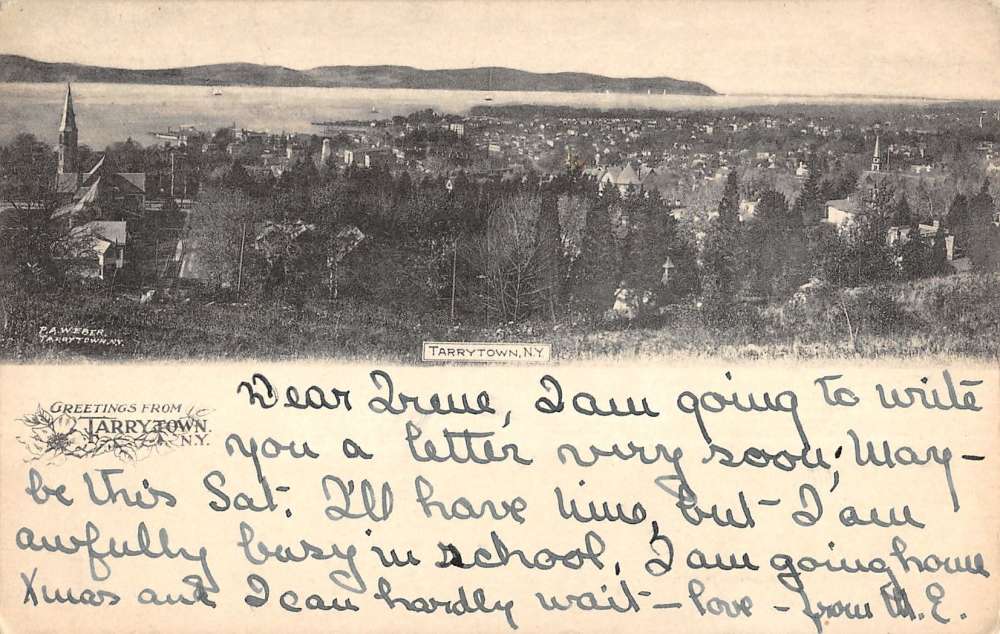 P.A. WEBER.
TARRYTOWN, N.Y.
TARRYTOWN, N.Y.
GREETINGS FROM
TARRYTOWN.
N.Y.
Dear Irene, I am going to write
you a letter very soon, May-
be this Sat. I'll have time, but I am
awfully busy in school, I am going home
Xmas and I can hardly wait - love - from M.E.